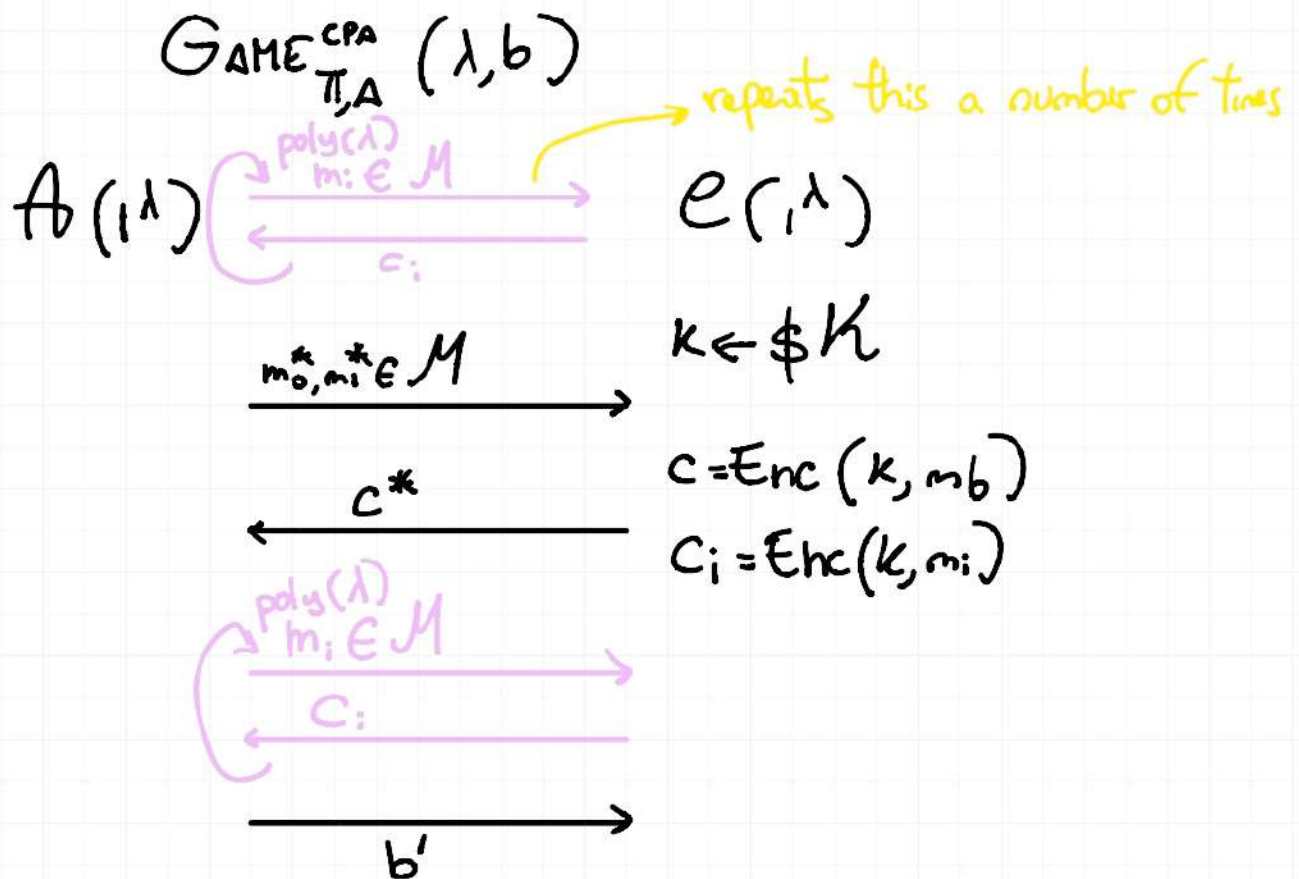 GAME^{CPA}_{Π,A} (λ,b)
repeats this a number of times
poly(λ)
m_i ∈ M
A(1^λ)
C(1^λ)
c_i
k ←$ K
m_0^*, m_1^* ∈ M
c = Enc(k, mb)
c^*
C_i = Enc(k, m_i)
poly(λ)
m_i ∈ M
C_i
b'